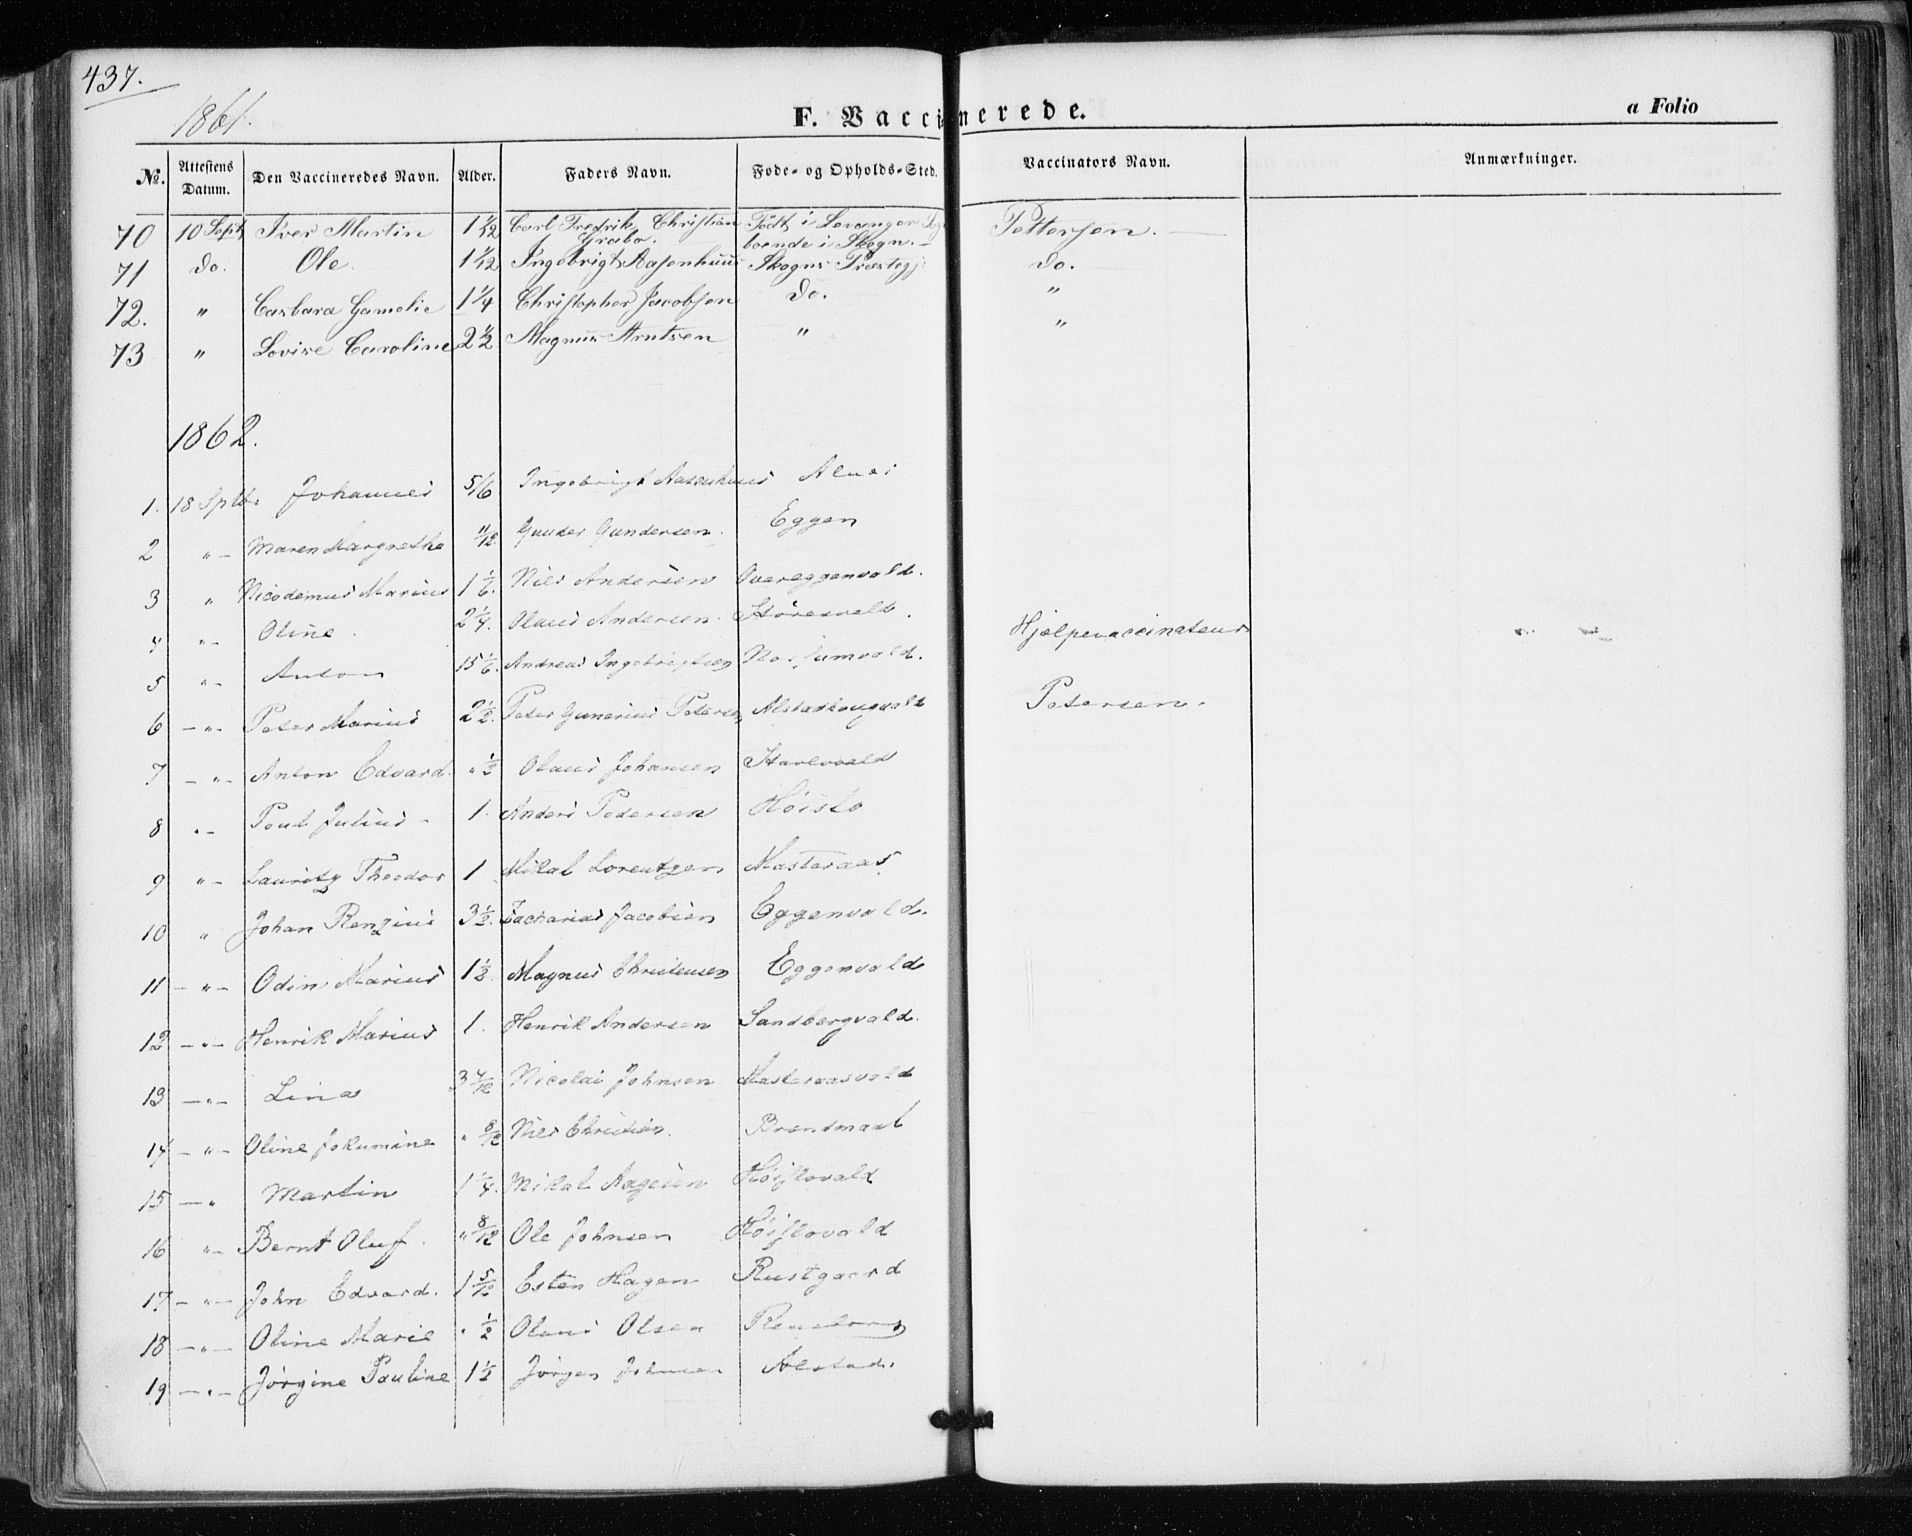 437.
1861.
F. Vaccinerede.
a Folio
No. Attestens Datum. Den Vaccineredes Navn. Alder. Faders Navn. Føde- og Opholds-Sted. Vaccinators Navn. Anmærkninger.
70 10 Sept Iver Martin 1 1/12 Carl Fredrik Christian Grabo. Født i Levanger boende i Skogn. Pettersen.
71 do. Ole 1 1/12 Ingebrigt Aasenhuus Skogns Præstegj: do.
72. " Barbara Gamelie 1 1/4 Christopher Jacobsen do. "
73 " Lovise Caroline 2 1/2 Magnus Arntsen " "
1862.
1. 18 Sptbr Johannes 5/6 Ingebrigt Aasenhuus
2 " Maren Margrethe 11/12 Gunder Gundersen. Eggen
3 " Nicodemus Marius 1 1/6. Niels Andersen Overeggenvald.
4 " Oline. 2 1/4. Olaus Andersen.
Hjelpevaccinateur
5 " Anton 15 1/6. Andreas Ingebrigtsen
6 " Peter Marius 2 1/2. Peter Gunerius Petersen Alstadhougvald
Petersen.
7 " Anton Edvard. " 1/2 Olaus Johansen
8 " Poul Julius 1. Anders Pedersen Høislo
9 " Lauritz Theodor 1 Mikal Lorentzen Masteraas.
10 " Johan Renzius 3 1/2. Zacharias Jacobsen Eggenvald.
11 " Odin Marius 1 1/2. Magnus Christensen Eggenvald
12 " Henrik Marius 1. Henrik Andersen Sandbergvald.
13 " Lina Nicolai Johnsen Masteraasvald
14 " Oline Jokumine Niels Christian.
15 " Martin 1 1/4. Mikal Aagesen Høislovald
16 " Bernt Oluf. " 8/12 Ole Johnsen Høislovald
17 " John Edvard. 1 5/12 Esten Hagen Rustgaard
18 " Oline Marie " 1/2 Olaus Olsen
19 " Jørgine Pauline 1 1/2 Jørgen Johnsen Alstad.